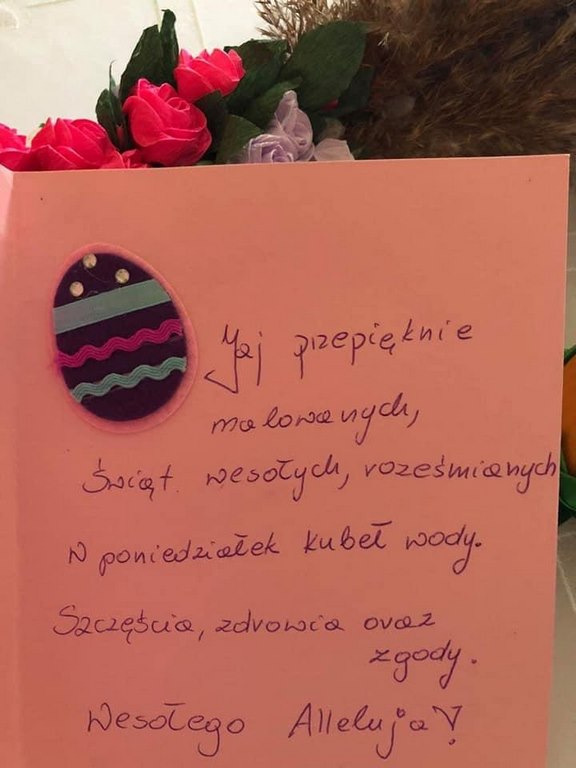 Jaj przepięknie
malowanych,
Świąt wesołych, roześmianych
W poniedziałek kubeł wody.
Szczęścia, zdrowia oraz
zgody.
Wesołego Alleluja!